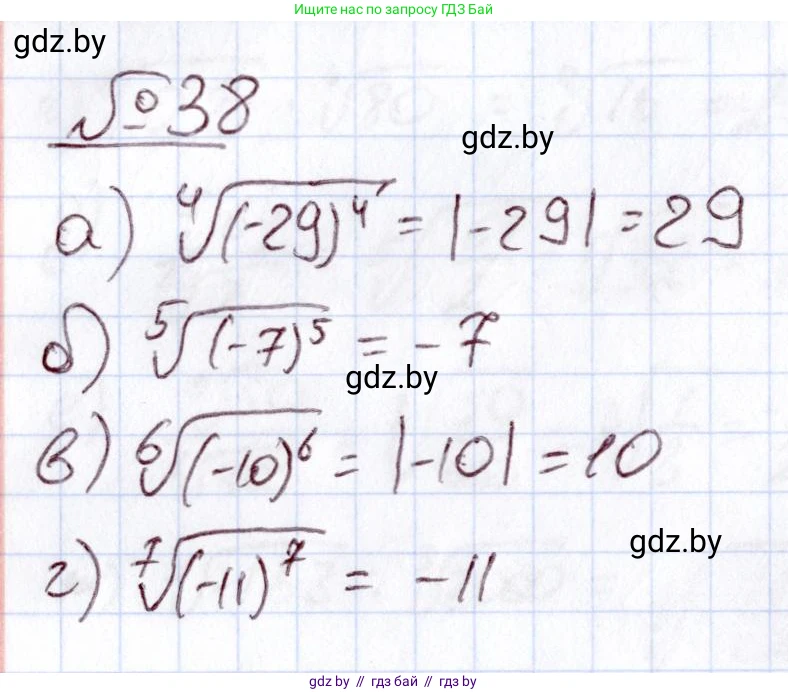 Ищите нас по запросу ГДЗ Бай
gdz.by
№38
gdz.by
а) ⁴√(-29)⁴ = |-29| = 29
б) ⁵√(-7)⁵ = -7
gdz.by
в) ⁶√(-10)⁶ = |-10| = 10
gdz.by
г) ⁷√(-11)⁷ = -11
gdz.by // гдз бай // gdz by